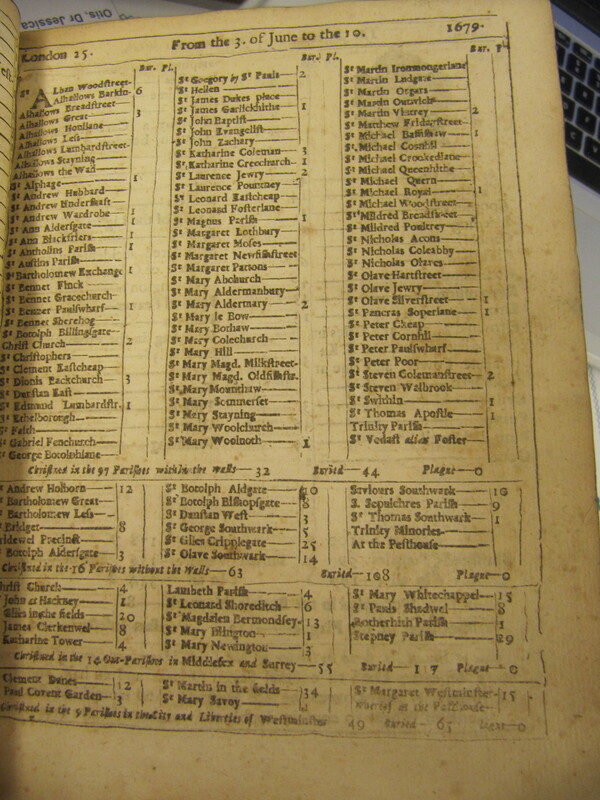 Otis, Dr Jessica
London 25. From the 3. of June to the 10. 1679.
Bur. Pl.
St Alban Woodstreet
Alhallows Barkin 6
Alhallows Breadstreet
Alhallows Great 3
Alhallows Honilane
Alhallows Less
Alhallows Lumbardstreet
Alhallows Stayning
Alhallows the Wall
St Alphage 1
St Andrew Hubbard
St Andrew Undershaft
St Andrew Wardrobe 1
St Ann Aldersgate 1
St Ann Blackfriers 1
St Antholins Parish 1
St Austins Parish
St Bartholomew Exchange 1
St Bennet Finck
St Bennet Gracechurch
St Bennet Paulswharf 1
St Bennet Sherehog
St Botolph Billingsgate
Christ Church 2
St Christophers
St Clement Eastcheap
St Dionis Backchurch 3
St Dunstan East
St Edmund Lumbardstr. 1
St Ethelborough
St Faith
St Gabriel Fenchurch
St George Botolphlane
Bur. Pl.
St Gregory by St Pauls 2
St Hellen
St James Dukes place
St James Garlickhithe 1
St John Baptist
St John Evangelist
St John Zachary
St Katharine Coleman 3
St Katharine Creechurch 1
St Laurence Jewry 2
St Laurence Pountney
St Leonard Eastcheap
St Leonard Fosterlane
St Magnus Parish 1
St Margaret Lothbury
St Margaret Moses
St Margaret Newfishstreet
St Margaret Pattons
St Mary Abchurch
St Mary Aldermanbury
St Mary Aldermary 2
St Mary le Bow
St Mary Bothaw
St Mary Colechurch
St Mary Hill
St Mary Magd. Milkstreet
St Mary Magd. Oldfishstr.
St Mary Mounthaw
St Mary Sommerset
St Mary Stayning
St Mary Woolchurch
St Mary Woolnoth 1
Bur. Pl.
St Martin Ironmongerlane
St Martin Ludgate
St Martin Orgars
St Martin Outwich
St Martin Vintrey 2
St Matthew Fridaystreet
St Michael Bassishaw 1
St Michael Cornhil
St Michael Crookedlane
St Michael Queenhithe
St Michael Quern
St Michael Royal 1
St Michael Woodstreet
St Mildred Breadstreet
St Mildred Poultrey
St Nicholas Acons
St Nicholas Coleabby
St Nicholas Olaves
St Olave Hartstreet
St Olave Jewry
St Olave Silverstreet 1
St Pancras Soperlane 1
St Peter Cheap
St Peter Cornhil
St Peter Paulswharf
St Peter Poor
St Steven Colemanstreet 2
St Steven Walbrook
St Swithin 1
St Thomas Apostle 1
Trinity Parish
St Vedast alias Foster
Christned in the 97 Parishes within the Walls 32 Buried 44 Plague 0
St Andrew Holborn 12
St Bartholomew Great
St Bartholomew Less
St Bridget 8
Bridewel Precinct
St Botolph Aldersgate 3
St Botolph Aldgate
St Botolph Bishopsgate 8
St Dunstan West 3
St George Southwark 5
St Giles Cripplegate 25
St Olave Southwark 14
Saviours Southwark 10
S. Sepulchres Parish 9
St Thomas Southwark 1
Trinity Minories
At the Pesthouse
Christned in the 16 Parishes without the Walls 63 Buried 108 Plague 0
Christ Church 4
John at Hackney
Giles in the fields 20
James Clerkenwel 8
Katharine Tower 4
Lambeth Parish 4
St Leonard Shoreditch 6
St Magdalen Bermondsey 13
St Mary Islington 1
St Mary Newington 3
St Mary Whitechappel 15
St Pauls Shadwel 8
Rotherhith Parish 1
Stepney Parish 29
Christned in the 14 Out-Parishes in Middlesex and Surrey 55 Buried Plague 0
Clement Danes 12
Paul Covent Garden 3
St Martin in the fields 34
St Mary Savoy 1
St Margaret Westminster 15
whereof at the Pesthouse
Christned in the 9 Parishes in the City and Liberties of Westminster 49 Buried 65 Plague 0